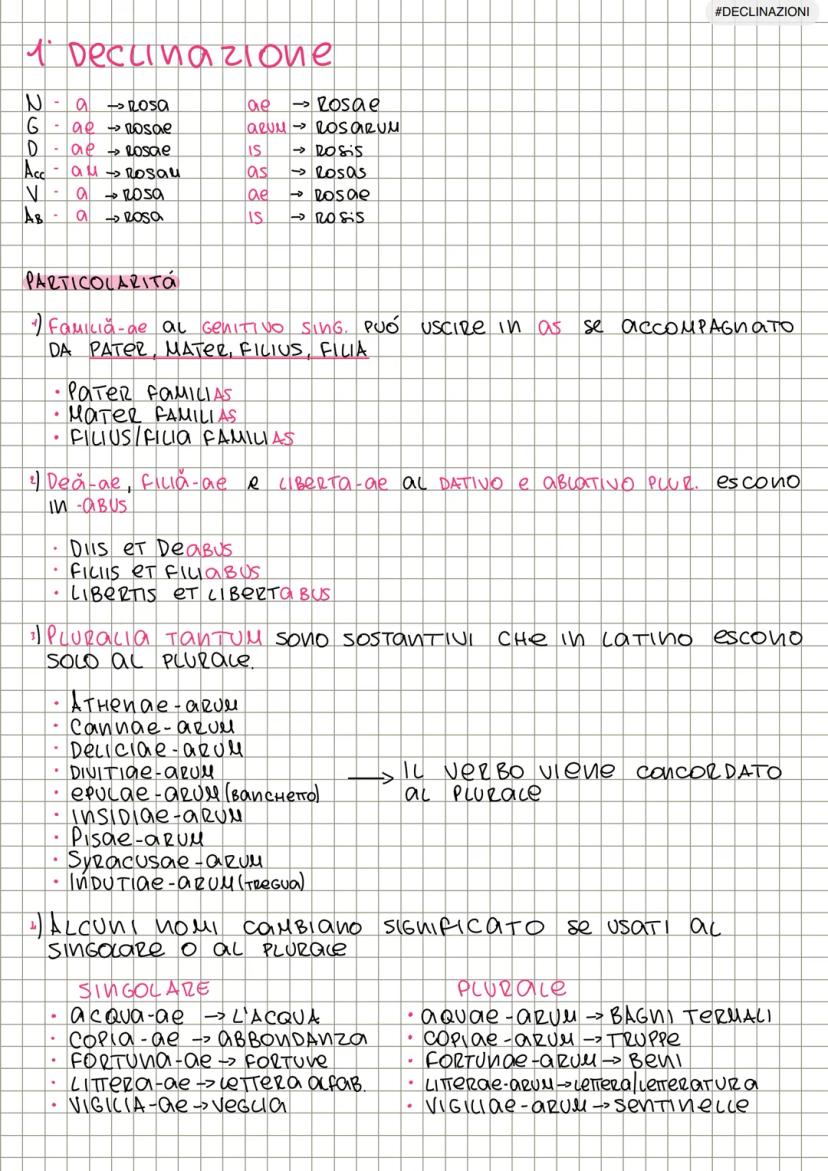 #DECLINAZIONI
1° DECLINAZIONE
N - a → ROSA ae → ROSAE
G - ae → ROSAE ARUM → ROSARUM
D - ae → ROSAE IS → ROSIS
Acc - am → ROSAM as → ROSAS
V - a → ROSA ae → ROSAE
AB - a → ROSA IS → ROSIS
PARTICOLARITÁ
1) Familiă-ae al GENITIVO SING. PUÓ USCIRE IN as se ACCOMPAGNATO
DA PATER, MATER, FILIUS, FILIA
• PATER FAMILIAS
• MATER FAMILIAS
• FILIUS/FILIA FAMILIAS
2) Deă-ae, filiă-ae e LIBERTA-ae al DATIVO e ABLATIVO PLUR. escono
IN -ABUS
• DIIS ET DEABUS
• FILIIS ET FILIABUS
• LIBERTIS ET LIBERTABUS
3) PLURALIA TANTUM SONO SOSTANTIVI CHE IN LATINO ESCONO
SOLO AL PLURALE.
• ATHENAE-ARUM
• CANNAE-ARUM
• DELICIAE-ARUM
• DIVITIAE-ARUM → IL VERBO VIENE CONCORDATO
• EPULAE-ARUM (BANCHETTO) AL PLURALE
• INSIDIAE-ARUM
• PISAE-ARUM
• SYRACUSAE-ARUM
• INDUTIAE-ARUM (TREGUA)
4) ALCUNI NOMI CAMBIANO SIGNIFICATO SE USATI AL
SINGOLARE O AL PLURALE
SINGOLARE PLURALE
• ACQUA-ae → L'ACQUA • AQUAE-ARUM → BAGNI TERMALI
• COPIA-ae → ABBONDANZA • COPIAE-ARUM → TRUPPE
• FORTUNA-ae → FORTUNE • FORTUNAE-ARUM → BENI
• LITTERA-ae → LETTERA ALFAB. • LITTERAE-ARUM → LETTERA/LETTERATURA
• VIGILIA-ae → VEGLIA • VIGILIAE-ARUM → SENTINELLE